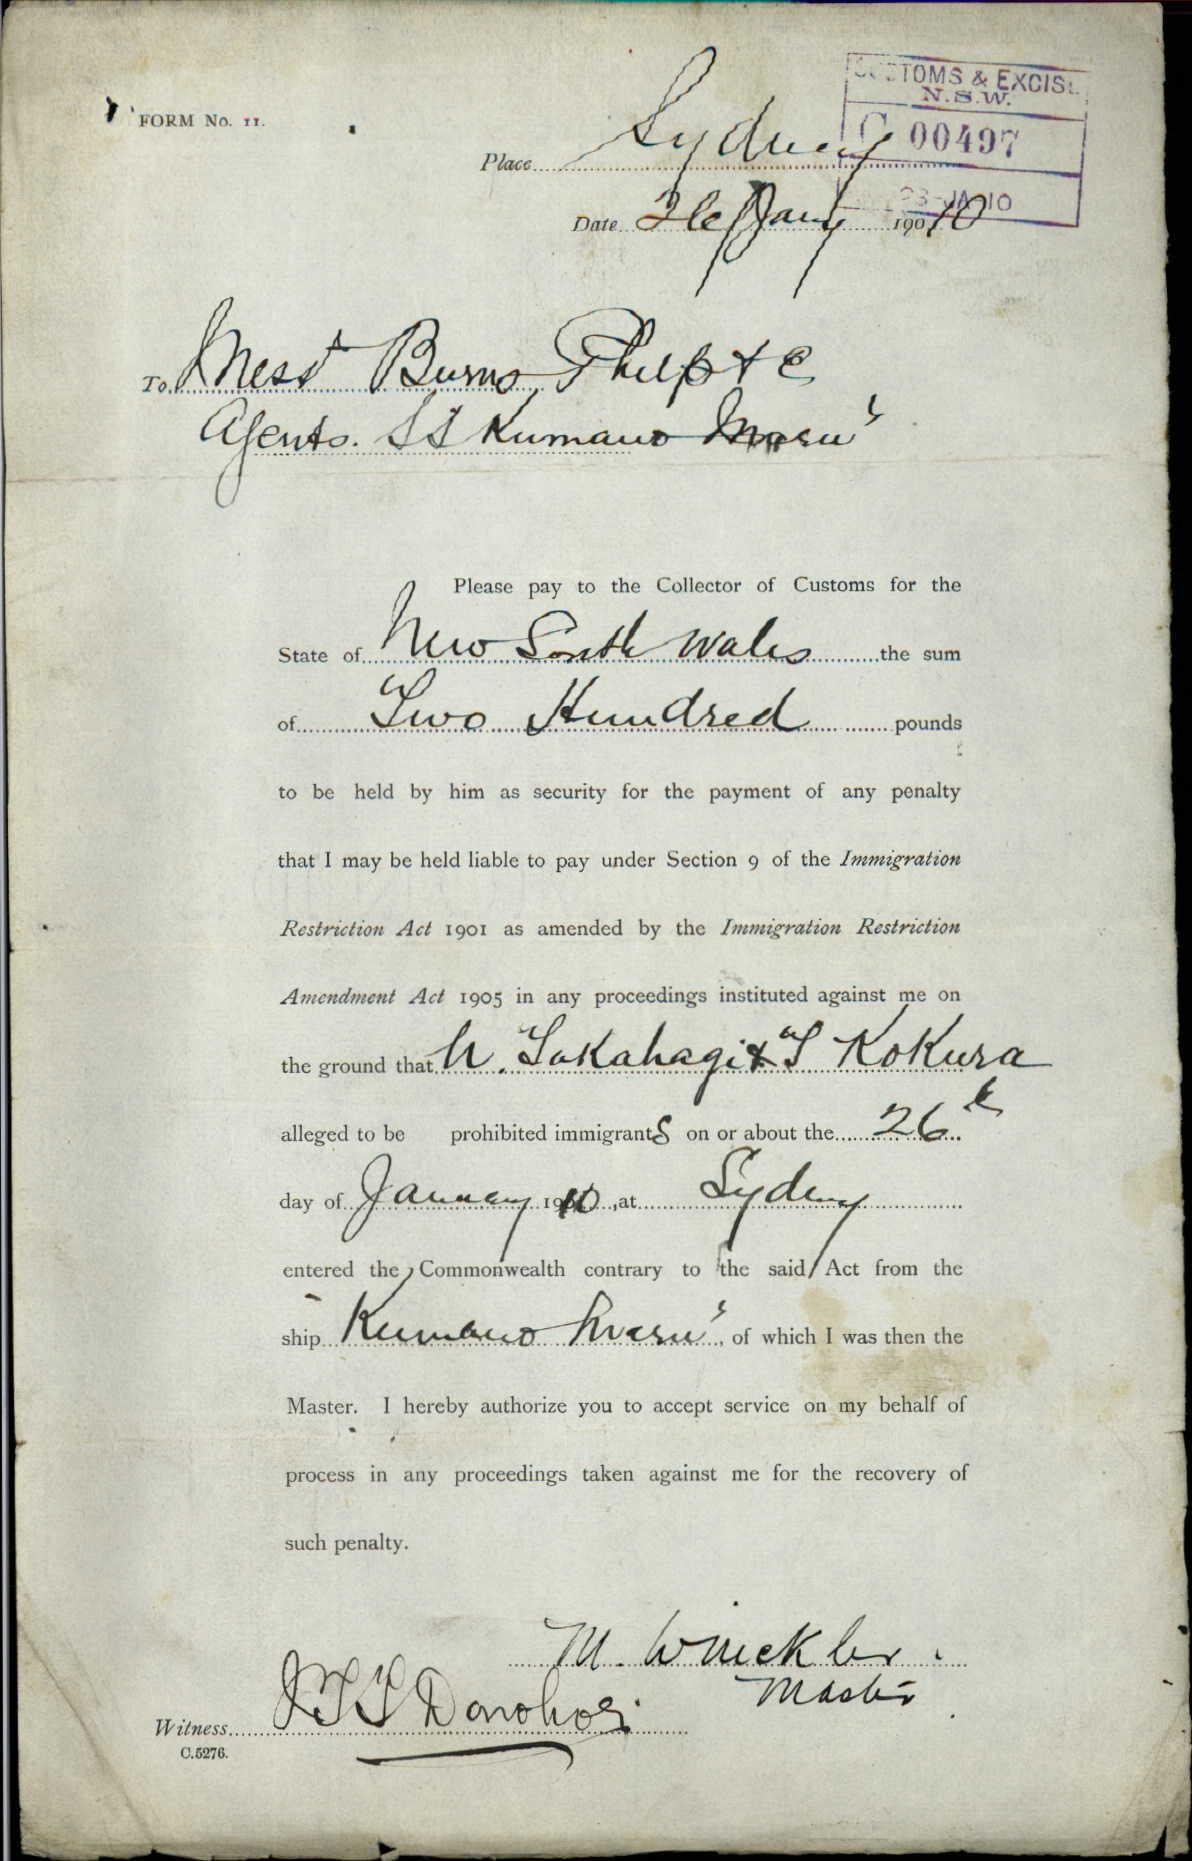 FORM No. 11.
CUSTOMS & EXCISE
N.S.W.
C 00497
28 JAN 10
Place Sydney
Date 26 Jany 1910
To Messrs Burns Philp & Co
Agents. SS Kumano Maru"
Please pay to the Collector of Customs for the
State of New South Wales the sum
of Two Hundred pounds
to be held by him as security for the payment of any penalty
that I may be held liable to pay under Section 9 of the Immigration
Restriction Act 1901 as amended by the Immigration Restriction
Amendment Act 1905 in any proceedings instituted against me on
the ground that N. Takahagi & T Kokura
alleged to be prohibited immigrants on or about the 26th
day of January 1910, at Sydney
entered the Commonwealth contrary to the said Act from the
ship Kumano Maru", of which I was then the
Master. I hereby authorize you to accept service on my behalf of
process in any proceedings taken against me for the recovery of
such penalty.
M. Winckler.
Master
Witness J T T Donohoe
C.5276.